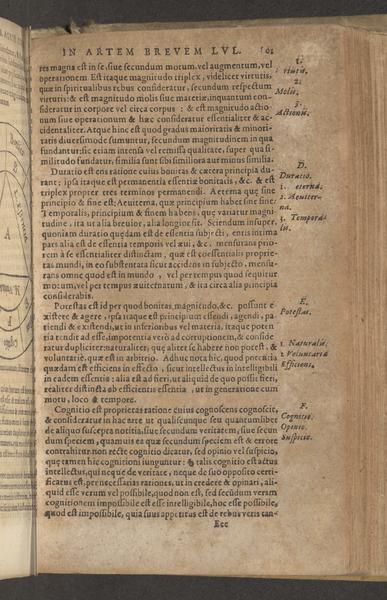 IN ARTEM BREVEM LVL.
res magna est in se, siue secundum motum, vel augmentum, vel
operationem. Est itaque magnitudo triplex, videlicet virtutis,
quæ in spiritualibus rebus consideratur, secundum respectum
virtutis: & est magnitudo molis siue materiæ, inquantum con-
sideratur in corpore vel circa corpus: & est magnitudo actio-
num siue operationum & hæc consideratur essentialiter & ac-
cidentaliter. Atque hinc est quod gradus maioritatis & minori-
tatis diuersimode sumuntur, secundum magnitudinem in qua
fundantur: sic etiam intensa vel remissa qualitate, super qua si-
militudo fundatur, similia sunt sibi similiora aut minus similia.
Duratio est ens ratione cuius bonitas & cætera principia du-
rant; ipsa itaque est permanentia essentiæ bonitatis, &c. & est
triplex propter tres terminos permanendi. Aeterna quæ sine
principio & fine est; Aeuiterna, quæ principium habet sine fine:
Temporalis, principium & finem habens, quæ variatur magni-
tudine, ita ut alia breuior, alia longior sit. Sciendum insuper,
quoniam duratio quædam est de essentia subiecti, entis intima
pars alia est de essentia temporis vel æui, &c. mensurans prio-
rem à se essentialiter distinctam, quæ est coessentialis proprie-
tas mundi, in eo substentata sicut accidens in subiecto, mensu-
rans omne quod est in mundo, vel per tempus quod sequitur
motum, vel per tempus æuiternatum, & ita circa alia principia
considerabis.
Potestas est id per quod bonitas, magnitudo, &c. possunt e-
xistere & agere, ipsa itaque est principium essendi, agendi, pa-
tiendi & existendi, ut in inferioribus vel materia, itaque poten
tia tendit ad esse, impotentia verò ad corruptionem, & conside
ratur dupliciter: naturaliter, quæ aliter se habere non potest, &
voluntariè, quæ est in arbitrio. Adhuc nota hic, quod potentia
quædam est efficiens in effecto, sicut intellectus in intelligibili
in eadem essentia: alia est ad fieri, ut aliquid de quo possit fieri,
realiter distincta ab efficientis essentia, ut in generatione cum
motu, loco & tempore.
Cognitio est proprietas ratione cuius cognoscens cognoscit,
& consideratur in hac arte ut qualiscunque seu quantumlibet
de aliquo suscepta notitia, siue secundum veritatem, siue secun
dum speciem, quamuis ea quæ secundum speciem est & errore
contrahitur, non recte cognitio dicatur, sed opinio vel suspicio,
quæ tamen hic cognitioni iunguntur: talis cognitio est actus
intellectus, qui neque de veritate, neque de suo opposito certi-
ficatus est, per necessarias rationes, ut in credere & opinari, ali-
quid esse verum vel possibile, quod non est, sed secundum veram
cognitionem impossibile est esse intelligibile, hoc esse possibile,
quod est impossibile, quia suus appetitus est de rebus veris tan-
Ecc
1.
virtutis.
2.
Molis.
3.
Actionis.
D.
Duratio.
1. eterna.
2. Aeuiter-
na.
3. Tempora-
lis.
E.
Potestas.
1 Naturalis.
2 Voluntaria
Efficiens.
F.
Cognitio.
Opinio.
Suspicio.